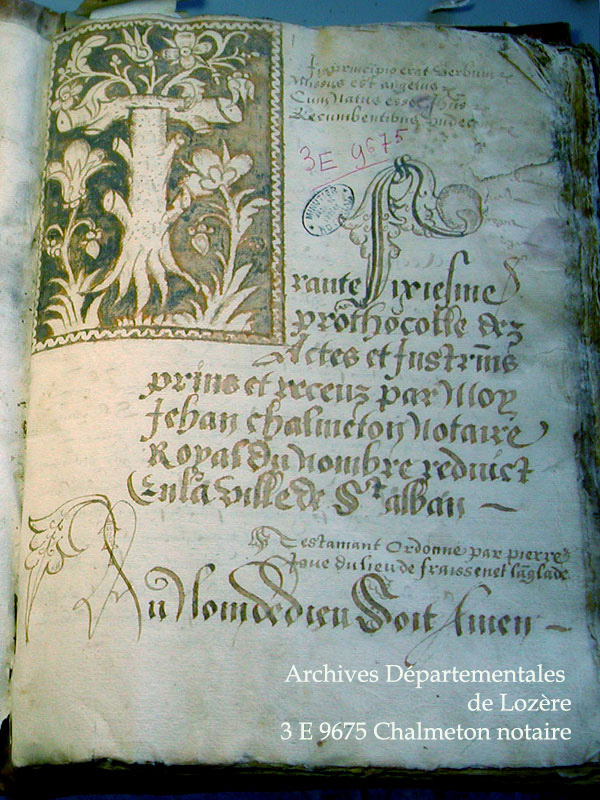 In principio erat verbum
Missus est angelus
Cum natus esset Jhus
Recumbentibus undec
3 E 9675
Trante sixiesme
prothocolle dez
Actes et Instrums
prins et receuz par Moy
Jehan Chalmeton Notaire
Royal du nombre reduict
En la ville de St alban
Testamant Ordonne par pierre
du lieu de fraissenet langlade
Au Nom de dieu Soit Amen
Archives Départementales
de Lozère
3 E 9675 Chalmeton notaire